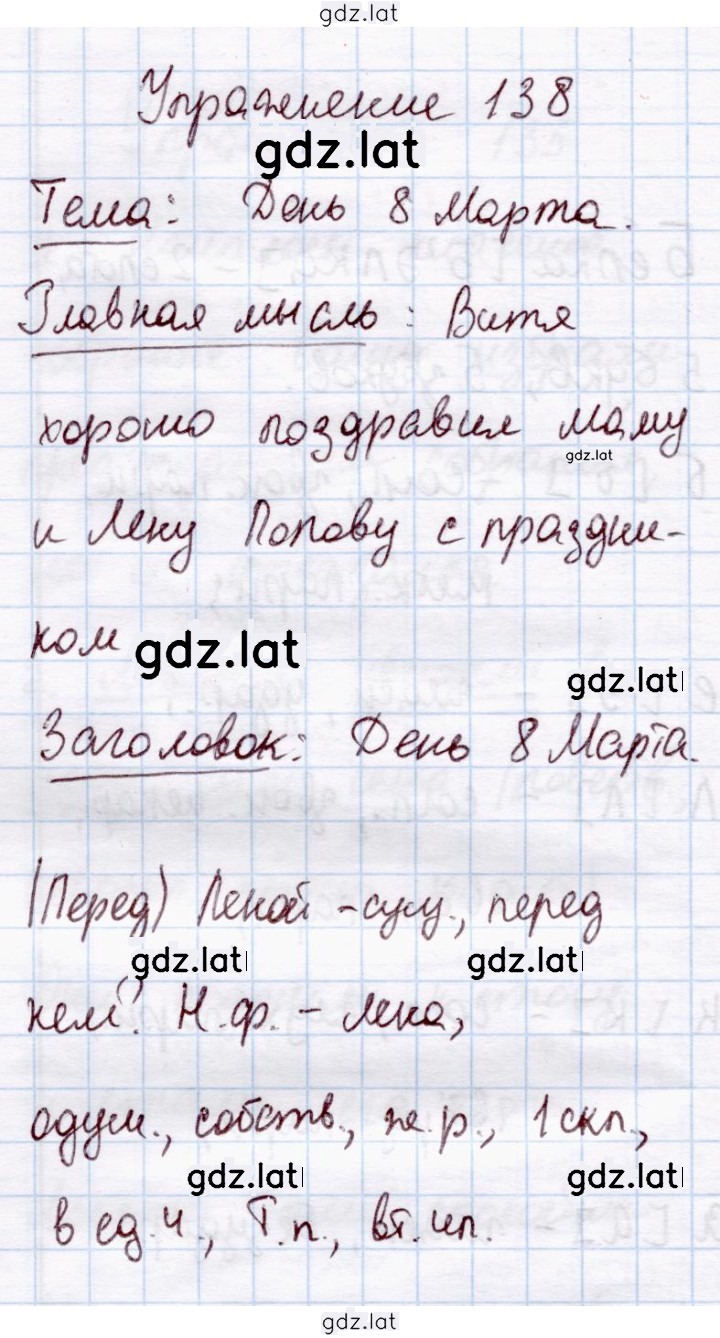 gdz.lat
Упражнение 138
gdz.lat
Тема: День 8 Марта.
Главная мысль: Витя
хорошо поздравил маму
gdz.lat
и Лену Попову с праздни-
ком
gdz.lat
gdz.lat
Заголовок: День 8 Марта.
(Перед) Леной - сущ., перед
gdz.lat
gdz.lat
кем? Н.ф. - Лена,
одуш., собств., ж.р., 1 скл.,
gdz.lat
gdz.lat
в ед.ч., Т.п., вт. чл.
gdz.lat